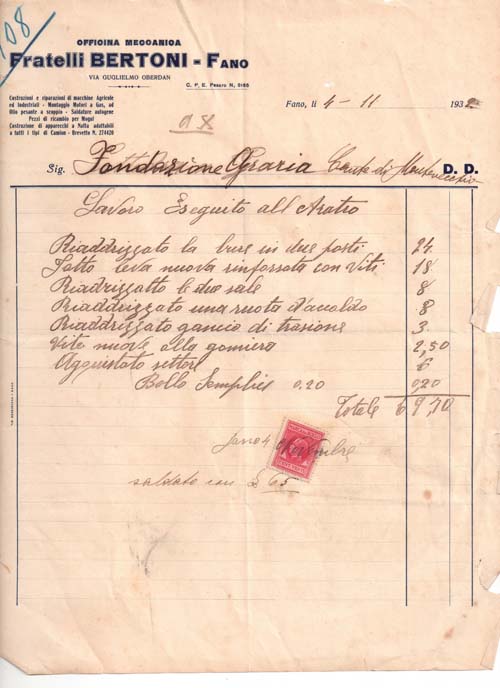 108
OFFICINA MECCANICA
Fratelli BERTONI - FANO
VIA GUGLIELMO OBERDAN
C. P. E. Pesaro N. 5166
Costruzioni e riparazioni di macchine Agricole
ed Industriali - Montaggio Motori a Gas, ad
Olio pesante a scoppio - Saldature autogene
Pezzi di ricambio per Mogul
Costruzione di apparecchi a Nafta adattabili
a tutti i tipi di Camion - Brevetto N. 274420
Fano, li 4 - 11 193
98
Sig. Fondazione Agraria Conte di Montevecchio D. D.
Lavoro Eseguito all Aratro
Riaddrizzato la bure in due posti 24
Fatto leva nuova rinforzata con Viti 18
Riadrizzatto le due sale 8
Riaddrizzato una ruota d'accoldo 8
Riaddrizzato gancio di trazione 3
Vite nuove alla gomiera 2,50
Aggiustato settore 6
Bollo Semplice 0,20 0,20
Totale 69,70
Fano 4 Novembre
saldato con £ 65